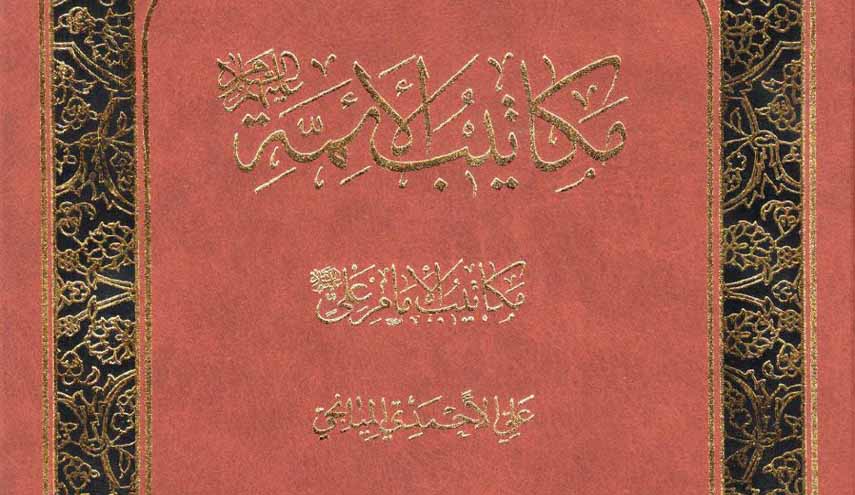 مكاتيب الأئمة عليهم السلام
مكاتيب الإمام علي
علي الأحمدي الميانجي